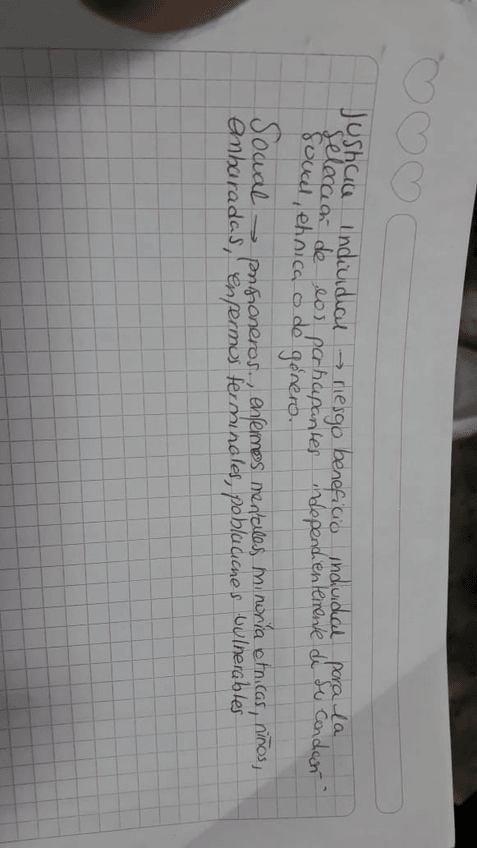 Justicia Individual → riesgo beneficio individual para la
selección de los participantes independientemente de su condición
social, étnica o de género.
Social → prisioneros, enfermos mentales, minoría etnicas, niños,
embarazadas, enfermos terminales, poblaciones vulnerables